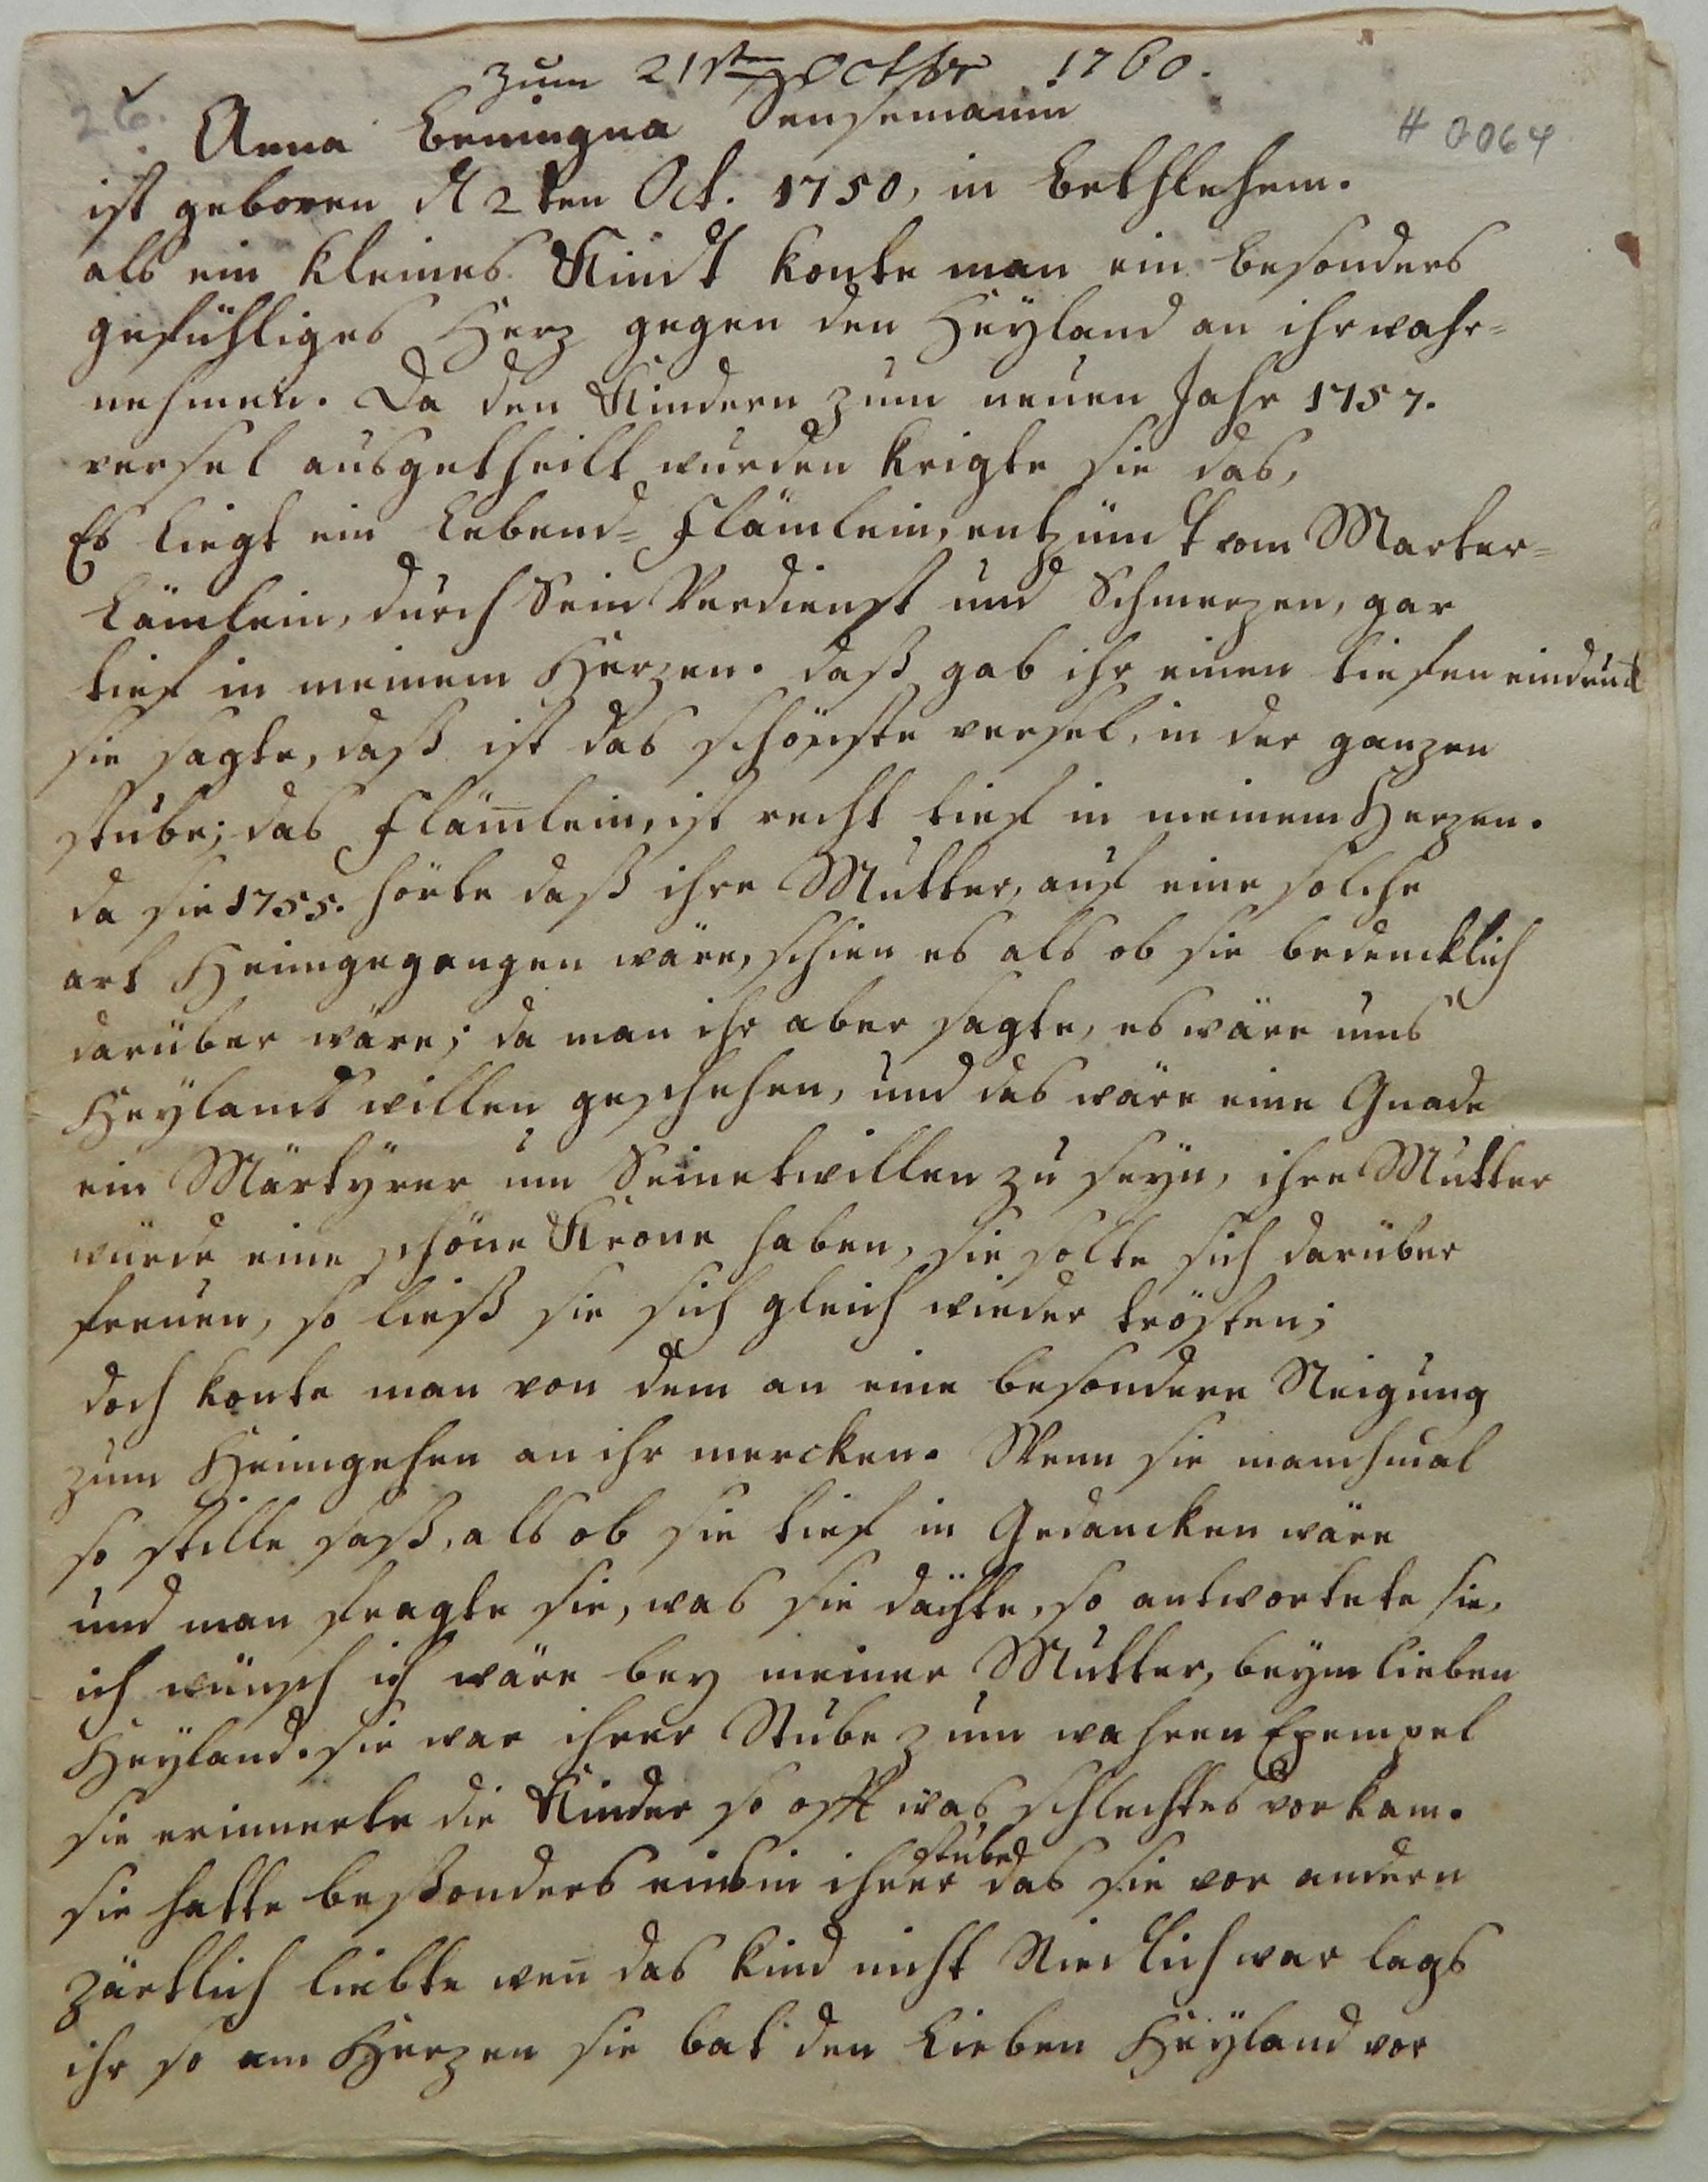 zum 21sten Octbr 1760.
26.
Anna Beningna Sensemanin
# 0064
ist geboren d 2ten Oct. 1750, in Bethlehem.
als ein kleines Kindt konte man ein besonders
gefühliges Herz gegen den Heÿland an ihr wahr=
nehmen. Da den Kindern zum neuen Jahr 1757.
versel ausgetheilt wurden krigte sie das,
Es liegt ein Lebend= Flämlein, entzünt vom Marter=
Lämlein, durch Sein Verdienst und Schmerzen, gar
tief in meinem Herzen. daß gab ihr einen tiefen eindruck
sie sagte, daß ist das schönste versel, in der ganzen
stube; das Flam̄lein, ist recht tief in meinem Herzen.
da sie 1755. hörte daß ihre Mutter, auf eine solche
art Heimgegangen wäre, schien es als ob sie bedencklich
darüber wäre; da man ihr aber sagte, es wäre ums
Heÿlands willen geschehen, und das wäre eine Gnade
ein Märtÿrer um Seinetwillen zu seÿn, ihre Mutter
würde eine schöne Krone haben, sie solte sich darüber
freuen, so ließ sie sich gleich wieder trösten;
doch konte man von dem an eine besondere Neigung
zum Heimgehen an ihr mercken. Wenn sie manchmal
so stille saß, als ob sie tief in Gedancken wäre
und man fragte sie, was sie dächte, so antwortete sie,
ich wünsch ich wäre bey meiner Mutter, beÿm lieben
Heÿland. sie war ihrer Stube zum wahren Exempel
sie erinnerte die Kinder so offt was schlechtes vor kam.
stube
sie hatte beßonders eins in ihrer das sie vor andern
zärtlich liebte wen̄ das kind nicht Niedlich war lags
ihr so am Herzen sie bat den Lieben Heÿland vor